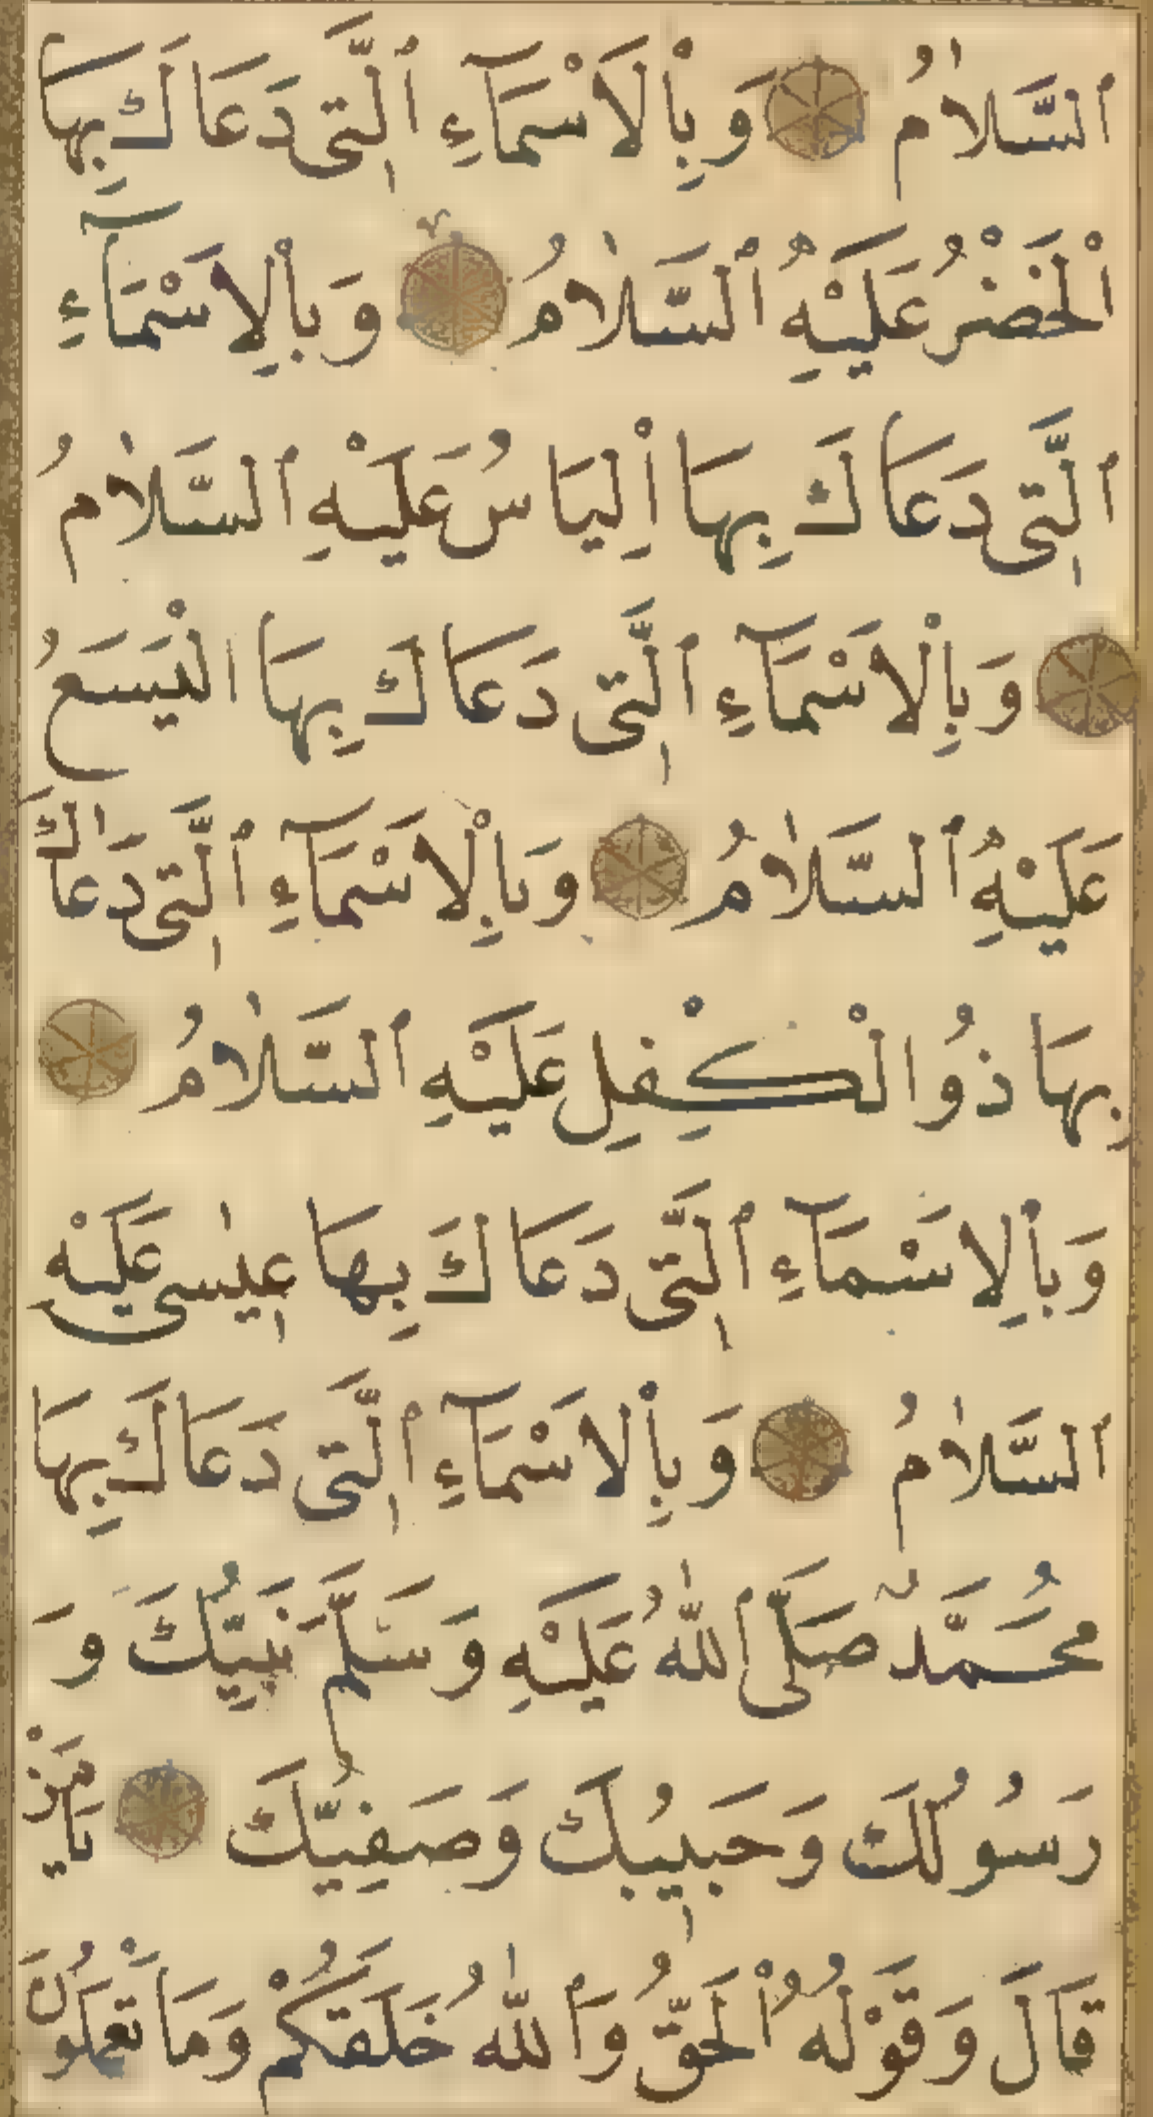 ٱلسَّلَامُ وَبِٱلْاَسْمَآءِ ٱلَّتِى دَعَاكَ بِهَا
ٱلْخَضْرُ عَلَيْهِ ٱلسَّلَامُ وَبِٱلْاَسْمَآءِ
ٱلَّتِى دَعَاكَ بِهَا اِلْيَاسُ عَلَيْهِ ٱلسَّلَامُ
وَبِٱلْاَسْمَآءِ ٱلَّتِى دَعَاكَ بِهَا الْيَسَعُ
عَلَيْهِ ٱلسَّلَامُ وَبِٱلْاَسْمَآءِ ٱلَّتِى دَعَاكَ
بِهَا ذُوالْكِفْلِ عَلَيْهِ ٱلسَّلَامُ
وَبِٱلْاَسْمَآءِ ٱلَّتِى دَعَاكَ بِهَا عِيسٰى عَلَيْهِ
ٱلسَّلَامُ وَبِٱلْاَسْمَآءِ ٱلَّتِى دَعَاكَ بِهَا
مُحَمَّدٌ صَلَّى ٱللّٰهُ عَلَيْهِ وَسَلَّمَ نَبِيُّكَ وَ
رَسُولُكَ وَحَبِيبُكَ وَصَفِيُّكَ يَامَنْ
قَالَ وَقَوْلُهُ ٱلْحَقُّ وَٱللّٰهُ خَلَقَكُمْ وَمَا تَعْمَلُونَ